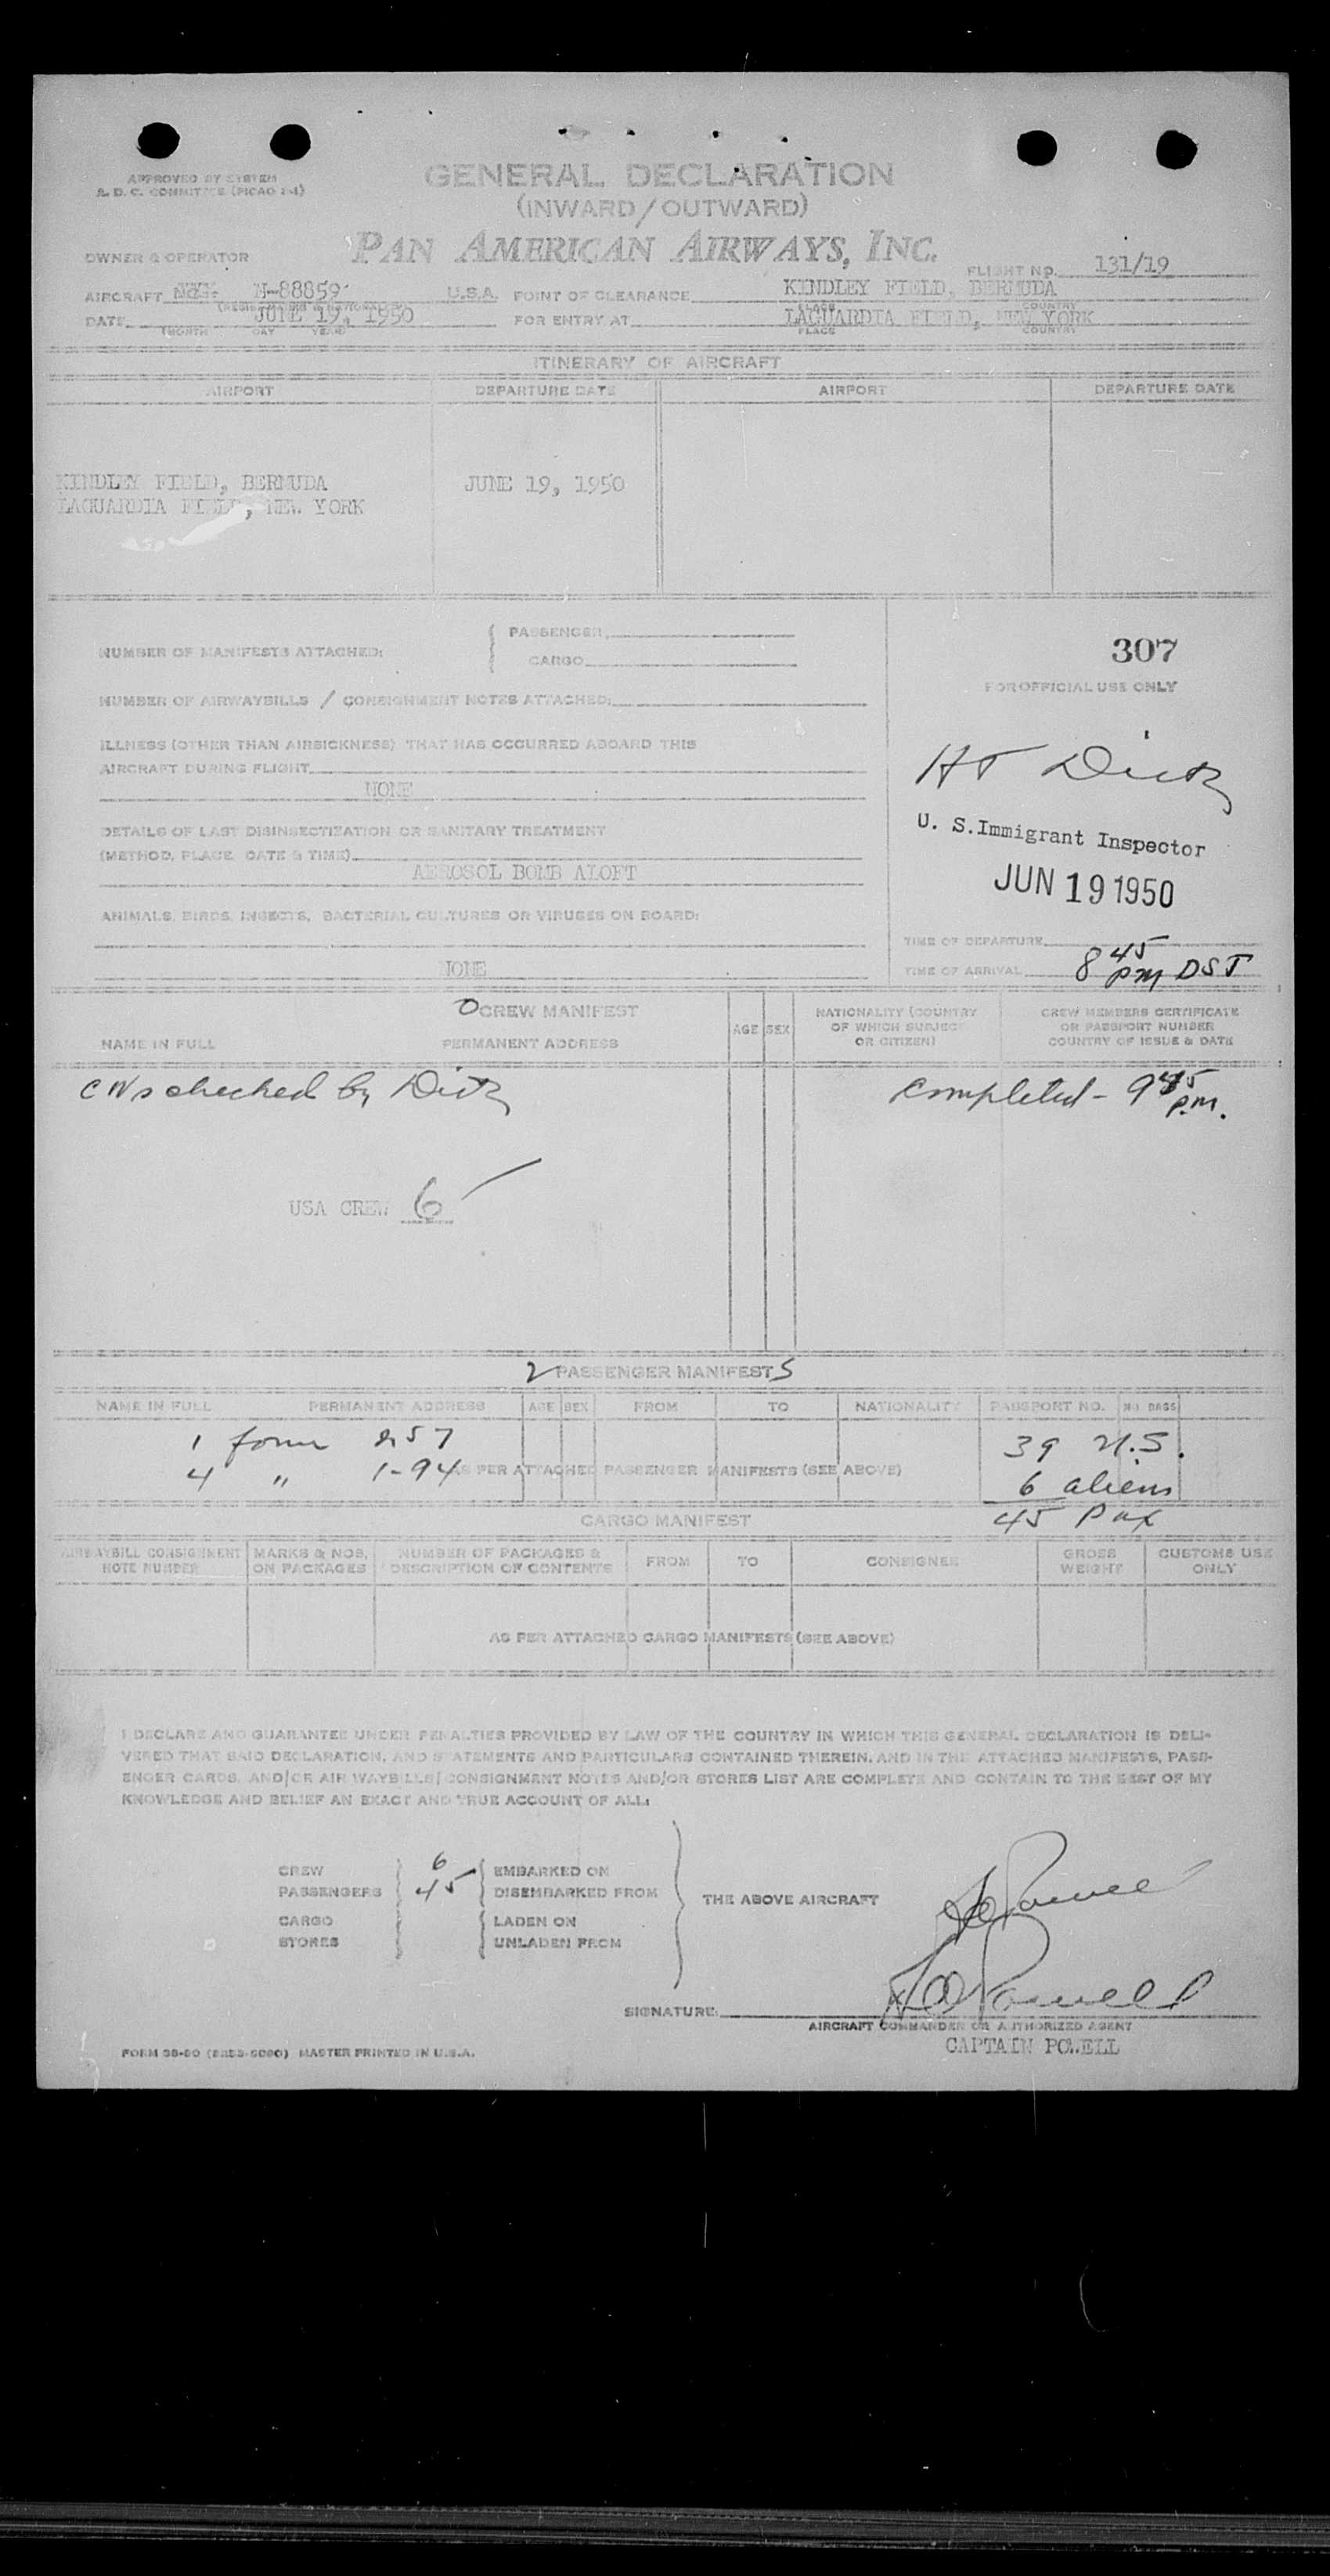 APPROVED BY SYSTEM
A. D. C. COMMITTEE (PICAO 2-1)
GENERAL DECLARATION
(INWARD/OUTWARD)
OWNER & OPERATOR PAN AMERICAN AIRWAYS, INC.
FLIGHT No. 131/19
AIRCRAFT N-88859 U.S.A. POINT OF CLEARANCE KINDLEY FIELD, BERMUDA
PLACE COUNTRY
DATE JUNE 19, 1950 FOR ENTRY AT LAGUARDIA FIELD, NEW YORK
MONTH DAY YEAR PLACE COUNTRY
ITINERARY OF AIRCRAFT
AIRPORT DEPARTURE DATE AIRPORT DEPARTURE DATE
KINDLEY FIELD, BERMUDA JUNE 19, 1950
LAGUARDIA FIELD, NEW YORK
NUMBER OF MANIFESTS ATTACHED: PASSENGER
CARGO
307
FOR OFFICIAL USE ONLY
NUMBER OF AIRWAYBILLS / CONSIGNMENT NOTES ATTACHED:
ILLNESS (OTHER THAN AIRSICKNESS) THAT HAS OCCURRED ABOARD THIS
AIRCRAFT DURING FLIGHT
NONE
DETAILS OF LAST DISINSECTIZATION OR SANITARY TREATMENT
(METHOD, PLACE, DATE & TIME)
AEROSOL BOMB ALOFT
ANIMALS, BIRDS, INSECTS, BACTERIAL CULTURES OR VIRUSES ON BOARD:
NONE
U. S. Immigrant Inspector
JUN 19 1950
TIME OF DEPARTURE
TIME OF ARRIVAL 8 45 PM DST
CREW MANIFEST
NAME IN FULL PERMANENT ADDRESS AGE SEX
NATIONALITY (COUNTRY
OF WHICH SUBJECT
OR CITIZEN)
CREW MEMBERS CERTIFICATE
OR PASSPORT NUMBER
COUNTRY OF ISSUE & DATE
checked by
Completed - 9 45 P.M.
USA CREW 6
2 PASSENGER MANIFESTS
NAME IN FULL PERMANENT ADDRESS AGE SEX FROM TO NATIONALITY PASSPORT NO. NO. BAGS
1 form 39 U.S.
4 " 1-94 AS PER ATTACHED PASSENGER MANIFESTS (SEE ABOVE)
6 aliens
45 Pax
CARGO MANIFEST
AIRWAYBILL CONSIGNMENT
NOTE NUMBER
MARKS & NOS.
ON PACKAGES
NUMBER OF PACKAGES &
DESCRIPTION OF CONTENTS
FROM TO CONSIGNEE
GROSS
WEIGHT
CUSTOMS USE
ONLY
AS PER ATTACHED CARGO MANIFESTS (SEE ABOVE)
I DECLARE AND GUARANTEE UNDER PENALTIES PROVIDED BY LAW OF THE COUNTRY IN WHICH THIS GENERAL DECLARATION IS DELI-
VERED THAT SAID DECLARATION, AND STATEMENTS AND PARTICULARS CONTAINED THEREIN, AND IN THE ATTACHED MANIFESTS, PASS-
ENGER CARDS, AND/OR AIR WAYBILLS/ CONSIGNMENT NOTES AND/OR STORES LIST ARE COMPLETE AND CONTAIN TO THE BEST OF MY
KNOWLEDGE AND BELIEF AN EXACT AND TRUE ACCOUNT OF ALL:
CREW 6 EMBARKED ON
PASSENGERS 45 DISEMBARKED FROM THE ABOVE AIRCRAFT
CARGO LADEN ON
STORES UNLADEN FROM
SIGNATURE: Powell
AIRCRAFT COMMANDER OR AUTHORIZED AGENT
CAPTAIN POWELL
MASTER PRINTED IN U.S.A.